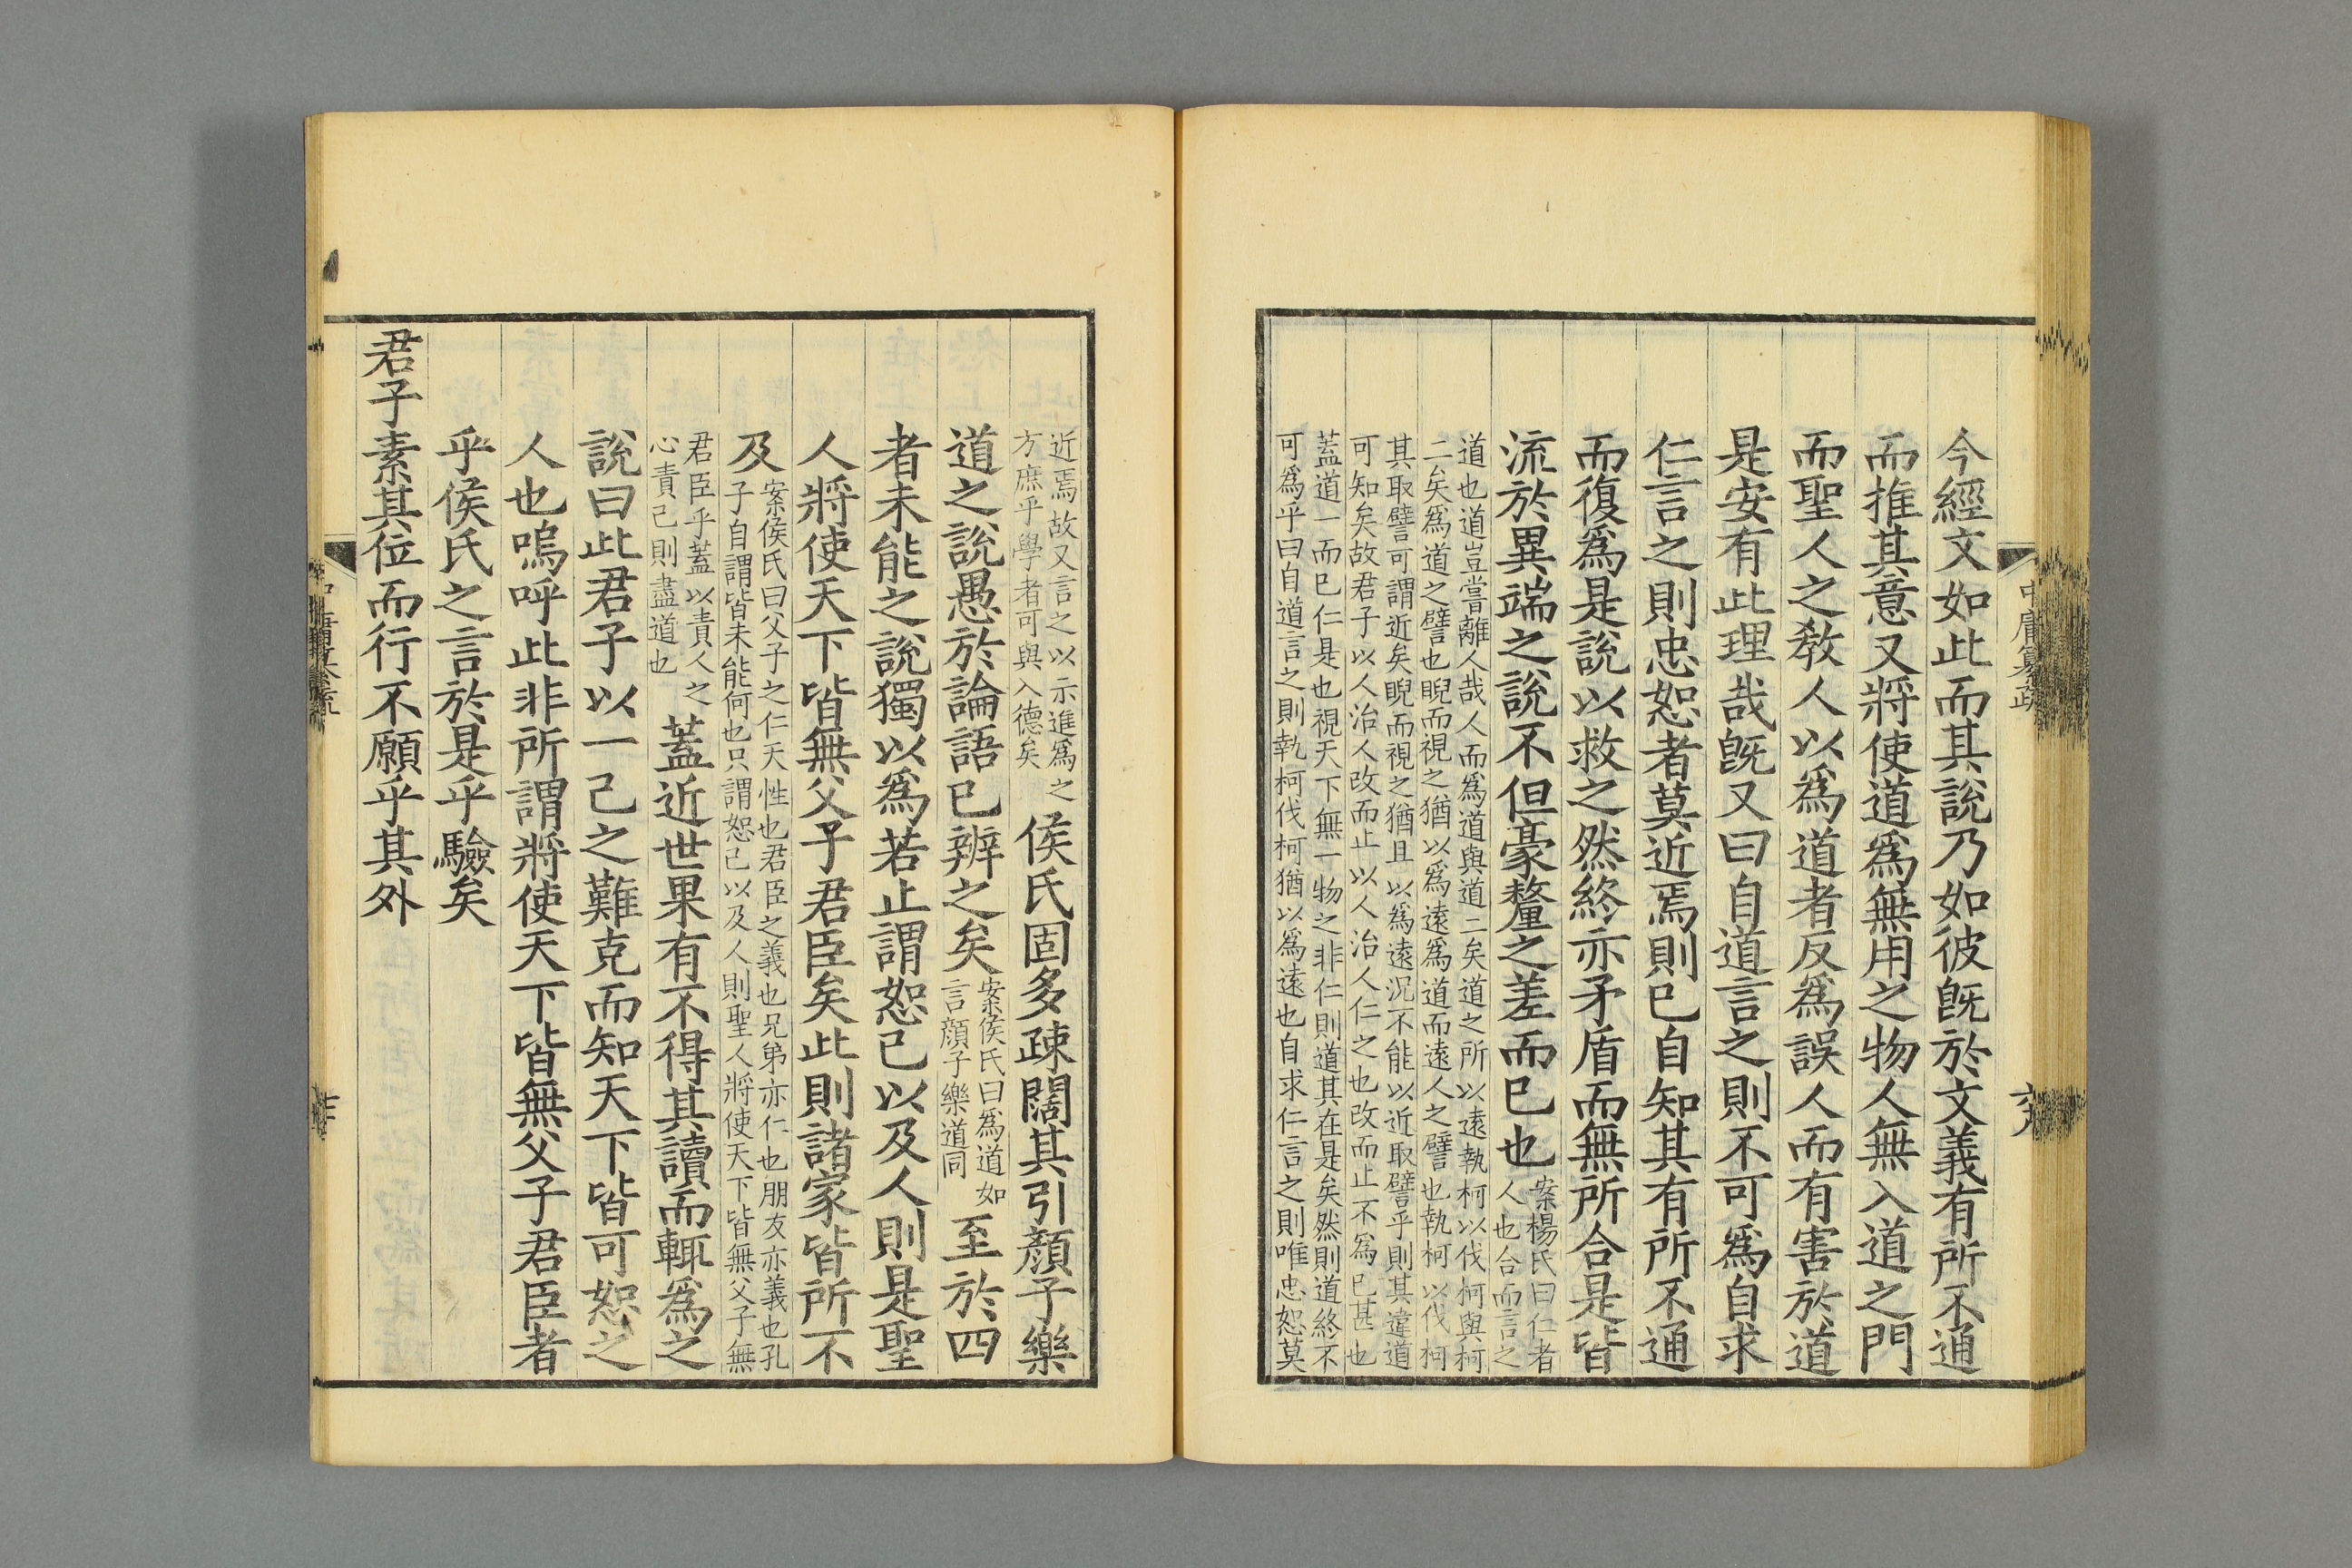 中庸纂疏
今經文如此而其說乃如彼旣於文義有所不通
而推其意又將使道爲無用之物人無入道之門
而聖人之敎人以爲道者反爲誤人而有害於道
是安有此理哉旣又曰自道言之則不可爲自求
仁言之則忠恕者莫近焉則已自知其有所不通
而復爲是說以救之然終亦矛盾而無所合是皆
流於異端之說不但豪釐之差而已也
案楊氏曰仁者
人也合而言之
道也道豈嘗離人哉人而爲道與道二矣道之所以遠執柯以伐柯與柯
二矣爲道之譬也睨而視之猶以爲遠爲道而遠人之譬也執柯以伐柯
其取譬可謂近矣睨而視之猶且以爲遠況不能以近取譬乎則其違道
可知矣故君子以人治人改而止以人治人仁之也改而止不爲已甚也
蓋道一而已仁是也視天下無一物之非仁則道其在是矣然則道終不
可爲乎曰自道言之則執柯伐柯猶以爲遠也自求仁言之則唯忠恕莫
近焉故又言之以示進爲之
方庶乎學者可與入德矣
侯氏固多疎闊其引顏子樂
道之說愚於論語已辨之矣
案侯氏曰爲道如
言顏子樂道同
至於四
者未能之說獨以爲若止謂恕已以及人則是聖
人將使天下皆無父子君臣矣此則諸家皆所不
及
案侯氏曰父子之仁天性也君臣之義也兄弟亦仁也朋友亦義也孔
子自謂皆未能何也只謂恕己以及人則聖人將使天下皆無父子無
君臣乎蓋以責人之
心責己則盡道也
蓋近世果有不得其讀而輒爲之
說曰此君子以一己之難克而知天下皆可恕之
人也嗚呼此非所謂將使天下皆無父子君臣者
乎侯氏之言於是乎驗矣
君子素其位而行不願乎其外